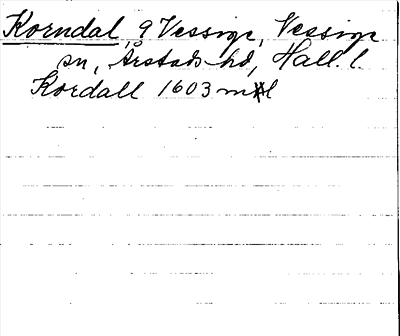 Korndal, 9 Vessige, Vessige
sn, Årstads hd, Hall. l.
Kordall 1603 mtl